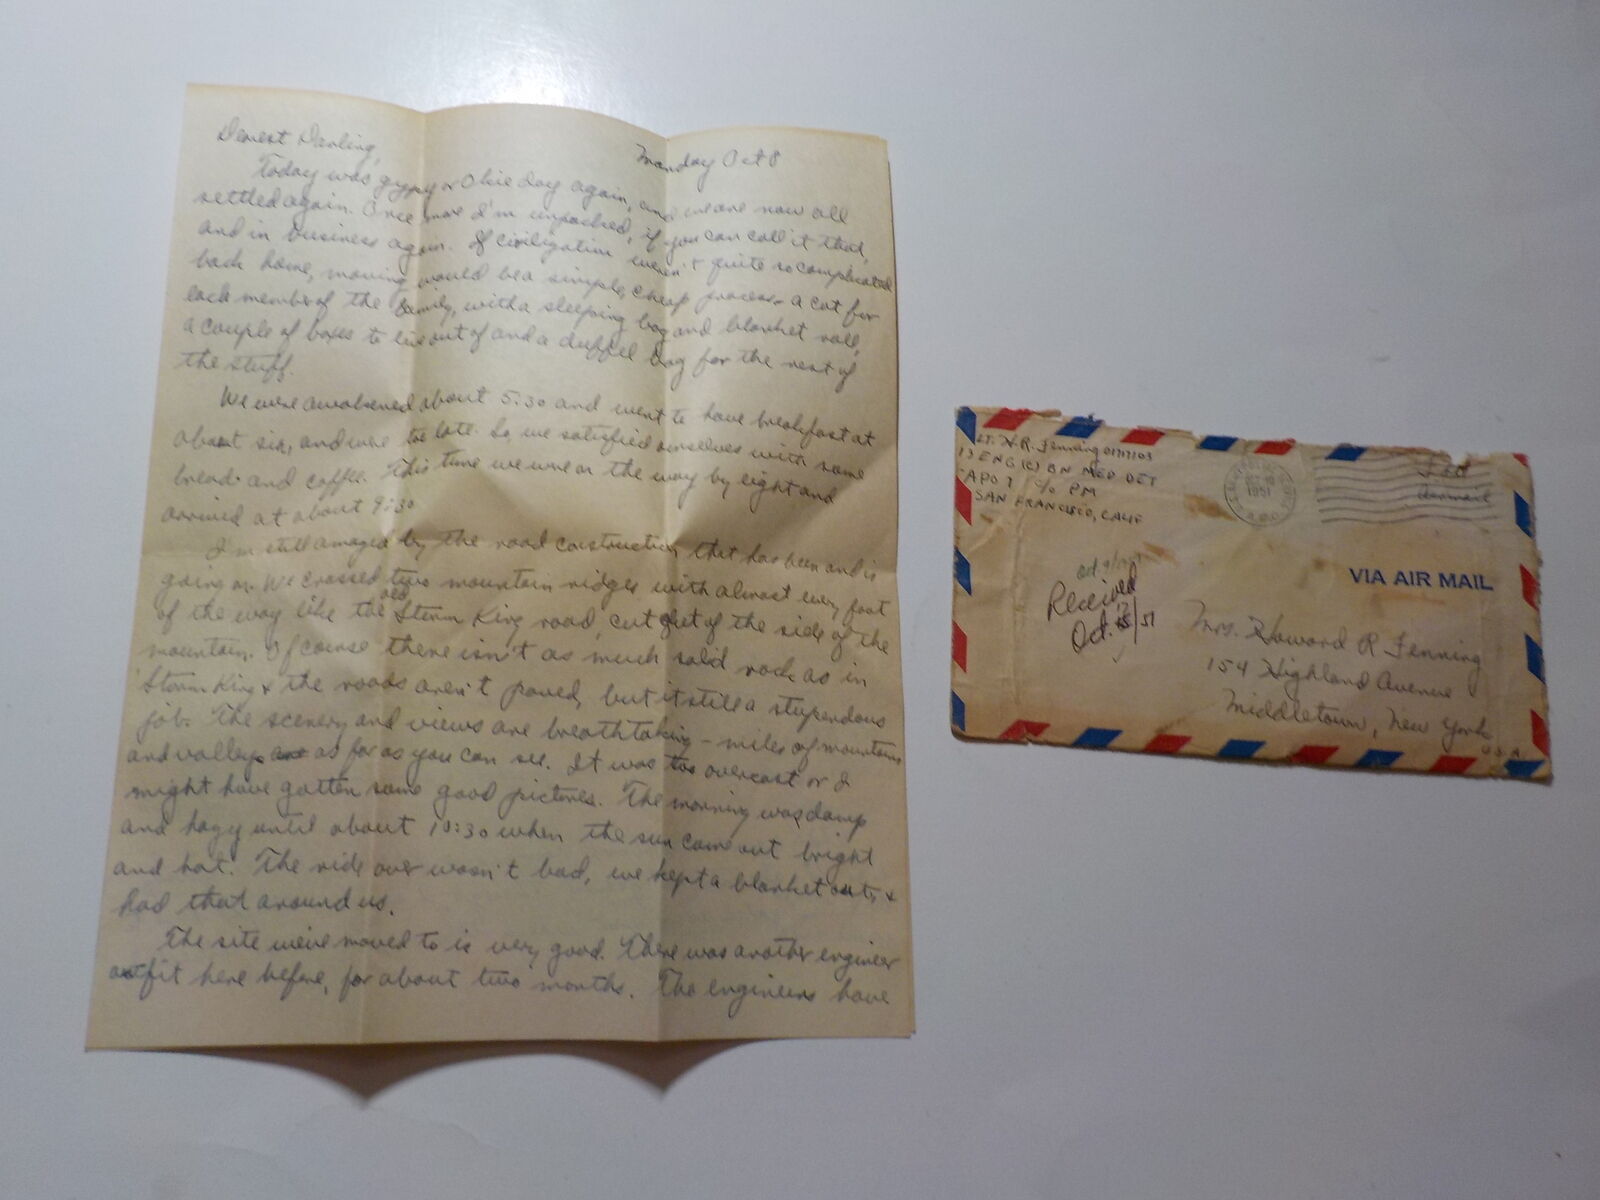 Dearest Darling,
Monday Oct 8
Today was gypsy or Okie day again, and we are now all
settled again. Once more I'm unpacked, if you can call it that,
and in business again. If civilization weren't quite so complicated
back home, moving would be a simple, cheap process - a cot for
each member of the family, with a sleeping bag and blanket roll,
a couple of boxes to live out of and a duffel bag for the rest of
the stuff.
We were awakened about 5:30 and went to have breakfast at
about six, and were too late. So we satisfied ourselves with some
bread and coffee. This time we were on the way by eight and
arrived at about 9:30
I'm still amazed by the road construction that has been and is
going on. We crossed two mountain ridges with almost every foot
of the way like the old Storm King road, cut out of the side of the
mountain. Of course there isn't as much solid rock as in
Storm King & the roads aren't paved, but it still a stupendous
job. The scenery and views are breathtaking - miles of mountains
and valleys as far as you can see. It was too overcast or I
might have gotten some good pictures. The morning was damp
and hazy until about 10:30 when the sun came out bright
and hot. The ride over wasn't bad, we kept a blanket out, &
had that around us.
The site we've moved to is very good. There was another engineer
outfit here before, for about two months. The engineers have
LT. H.R. Fenning
13 ENG (C) BN MED DET
APO 7 c/o PM
SAN FRANCISCO, CALIF
1951
Airmail
VIA AIR MAIL
Received
Oct. /51
Mrs. Howard R Fenning
154 Highland Avenue
Middletown, New York
USA